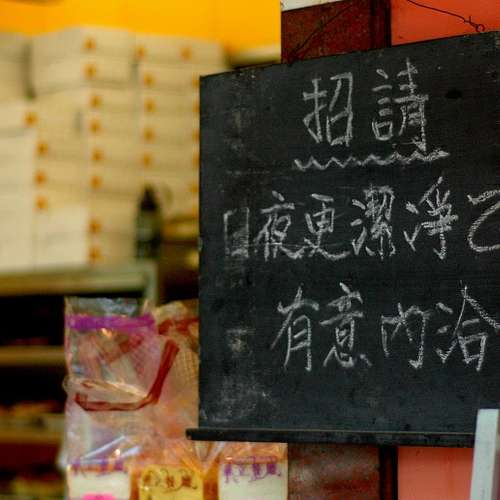 招請
日夜更潔淨
有意內洽